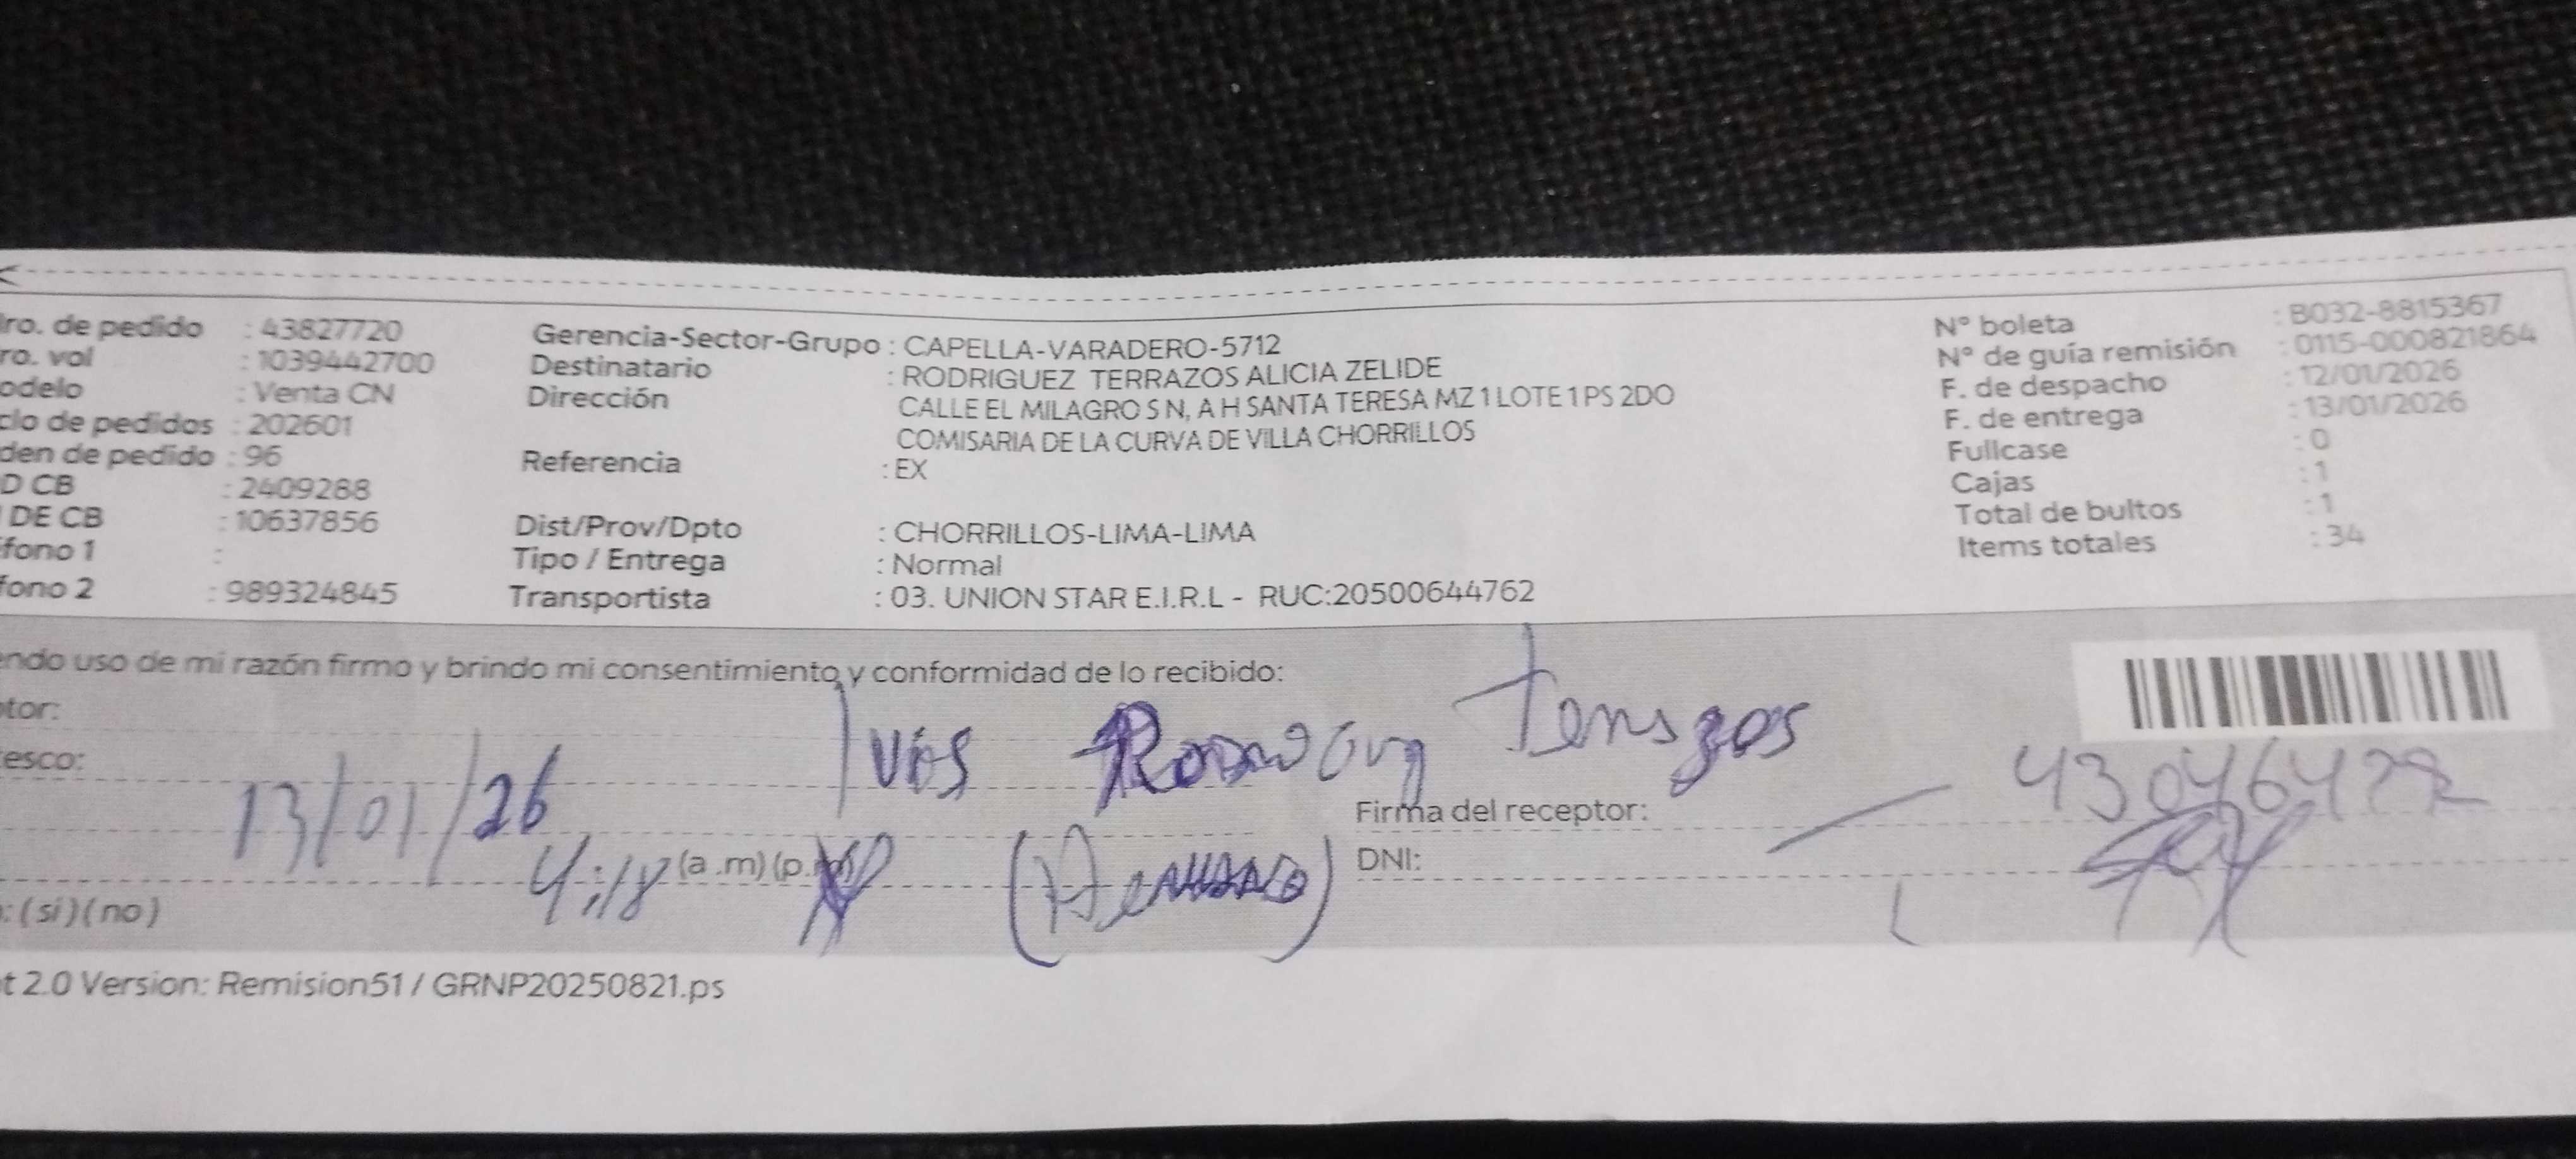 ro. de pedido : 43827720
ro. vol : 1039442700
odelo : Venta CN
clo de pedidos : 202601
den de pedido : 96
D CB : 2409288
DE CB : 10637856
fono 1 :
fono 2 : 989324845
Gerencia-Sector-Grupo : CAPELLA-VARADERO-5712
Destinatario : RODRIGUEZ TERRAZOS ALICIA ZELIDE
Dirección CALLE EL MILAGRO S N, A H SANTA TERESA MZ 1 LOTE 1 PS 2DO
COMISARIA DE LA CURVA DE VILLA CHORRILLOS
Referencia : EX
Dist/Prov/Dpto : CHORRILLOS-LIMA-LIMA
Tipo / Entrega : Normal
Transportista : 03. UNION STAR E.I.R.L - RUC:20500644762
N° boleta : B032-8815367
N° de guía remisión : 0115-000821864
F. de despacho : 12/01/2026
F. de entrega : 13/01/2026
Fullcase : 0
Cajas : 1
Total de bultos : 1
Items totales : 34
endo uso de mi razón firmo y brindo mi consentimiento y conformidad de lo recibido:
tor:
esco:
13/01/26
4:18 (a.m) (p.m)
Firma del receptor:
DNI:
: (si) (no)
t 2.0 Version: Remision51 / GRNP20250821.ps